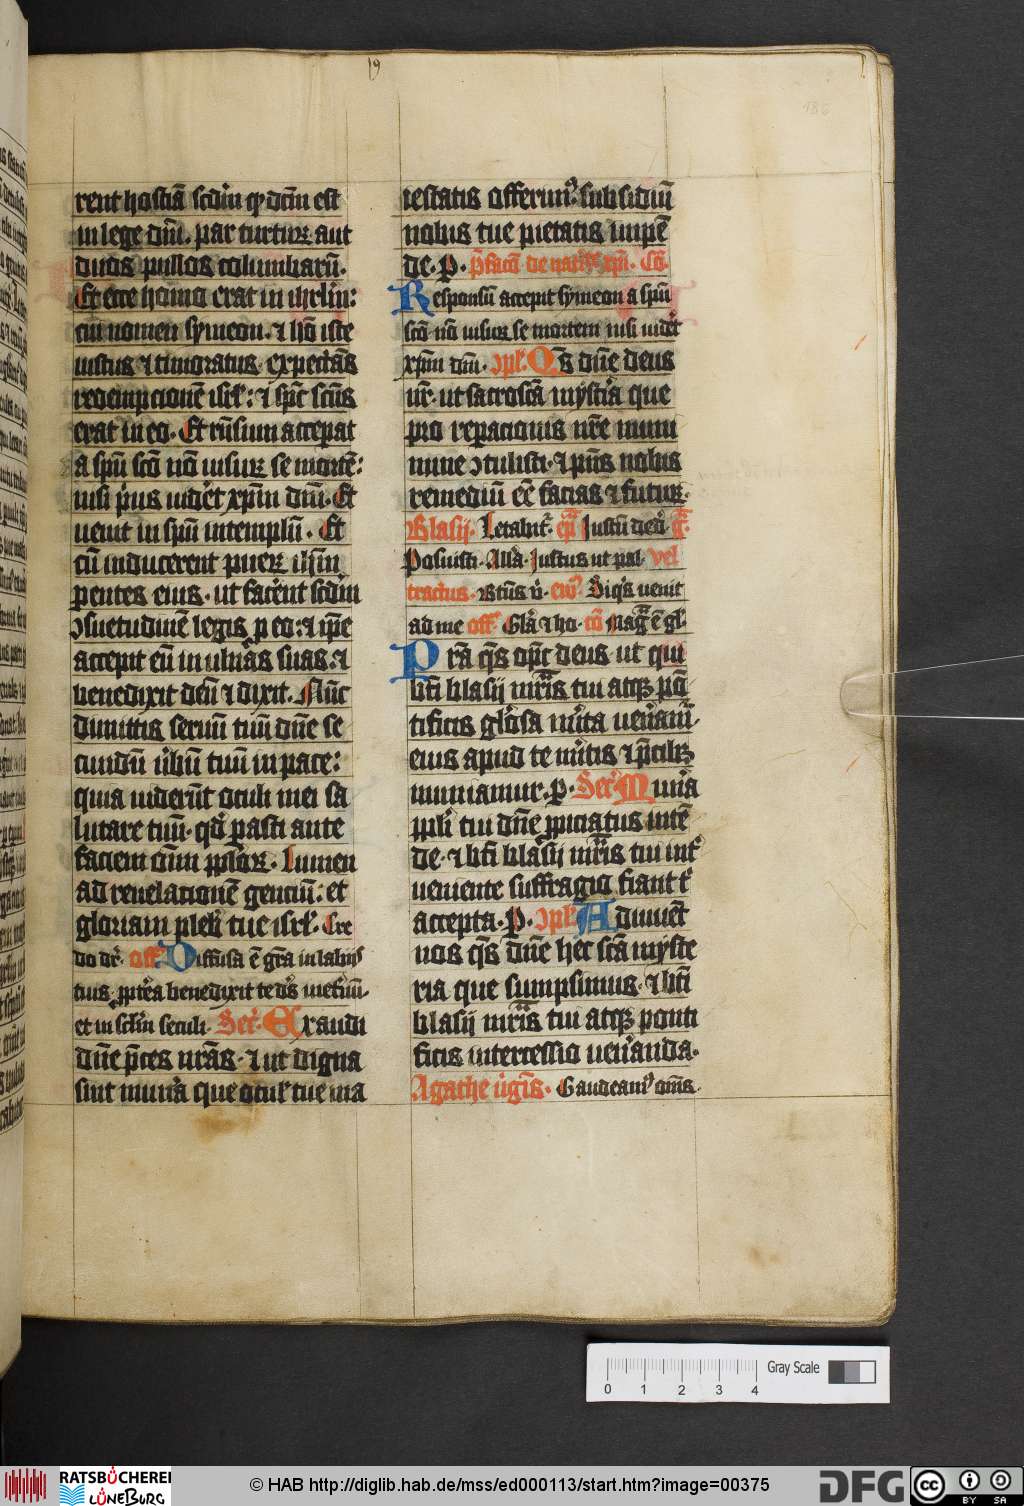 19
186
rent hostiā scdm̄ qͻ dcm̄ est
in lege dn̄i. par turturꝝ aut
duos pullos columbarū.
Et ecce homo erat in ihrlm̄:
cui nomen symeon. ⁊ hō iste
iustus ⁊ timoratus. expectās
redempcionē isrl̄: ⁊ spc̄ scūs
erat in eo. Et rn̄sum accepat
a spū scō nō uisuꝝ se mortē:
nisi pͥus uidet xpm̄ dn̄i. Et
uenit in spū in templū. Et
cū inducerent pueꝝ ihm̄
pentes eius. ut facēnt scdm̄
ͻsuetudinē legis ꝑ eo: ⁊ ip̄e
accepit eū in ulnas suas: ⁊
benedixit deū ⁊ dixit. Nūc
dimittis seruū tuū dn̄e se
cundū ūbū tuū in pace:
quia uiderūt oculi mei sa
lutare tuū. qd̄ pasti ante
faciem oīm ppl̄oꝝ. Lumen
ad reuelacionē genciū: et
gloriam pleb̄ tue isrl̄. Cre
do dr̄. off̄. Diffusa ē gr̄a in labijs
tuis ꝓpt̄ea benedixit te ds̄ inet̄nū.
et in sclm̄ seculi. Secr̄. Exaudi
dn̄e p̄ces nrās. ⁊ ut digna
sint munͥa que oculis tue ma
iestatis offerimꝰ. subsidiū
nobis tue pietatis impē
de. P. p̄facō de natī. xp̄i. Cō.
Responsū accepit symeon a spū
scō nō uisuꝝ se mortem nisi uidēt
xpm̄ dn̄i. ͻpl̄. Qs̄ dn̄e deus
nr̄. ut sacroscā mystͥa que
pro reparacionis nrē muni
mine ͻtulisti. ⁊ pn̄s nobis
remediū eē facias ⁊ futuꝝ.
Blasij. Letabit̄. ep̄la Iustū ded̄. gͣ.
Posuisti. All̄a. Iustus ut pal. vel
tractus. Btūs ū. ewͫ. Siqͥs uenit
ad me off̄. Gl̄a ⁊ ho. cō Magͣ ē gl̄.
Prā qs̄ opc̄ deus. ut qui
bt̄i blasij mr̄is tui atqꝫ pō
tificis gl̄osa mͥta uen̄amͬ.
eius apud te mͥtis ⁊ p̄cibꝫ
muniamur. P. Secr̄. Munͥa
ppl̄i tui dn̄e ꝓpiciatus intē
de. ⁊ bt̄i blasij mr̄is tui int̄
ueniente suffragio fiant t̄
accepta. P. ͻpl̄. Adiuuēt
nos qs̄ dn̄e hec scā myste
ria que sumpsimus. ⁊ bt̄i
blasij mr̄is tui atqꝫ ponti
ficis intercessio uen̄anda.
Agathe ūgīs. Gaudeamꝰ om̄s.
Gray Scale
0 1 2 3 4
RATSBÜCHEREI LÜNEBURG
© HAB http://diglib.hab.de/mss/ed000113/start.htm?image=00375
DFG
cc BY SA